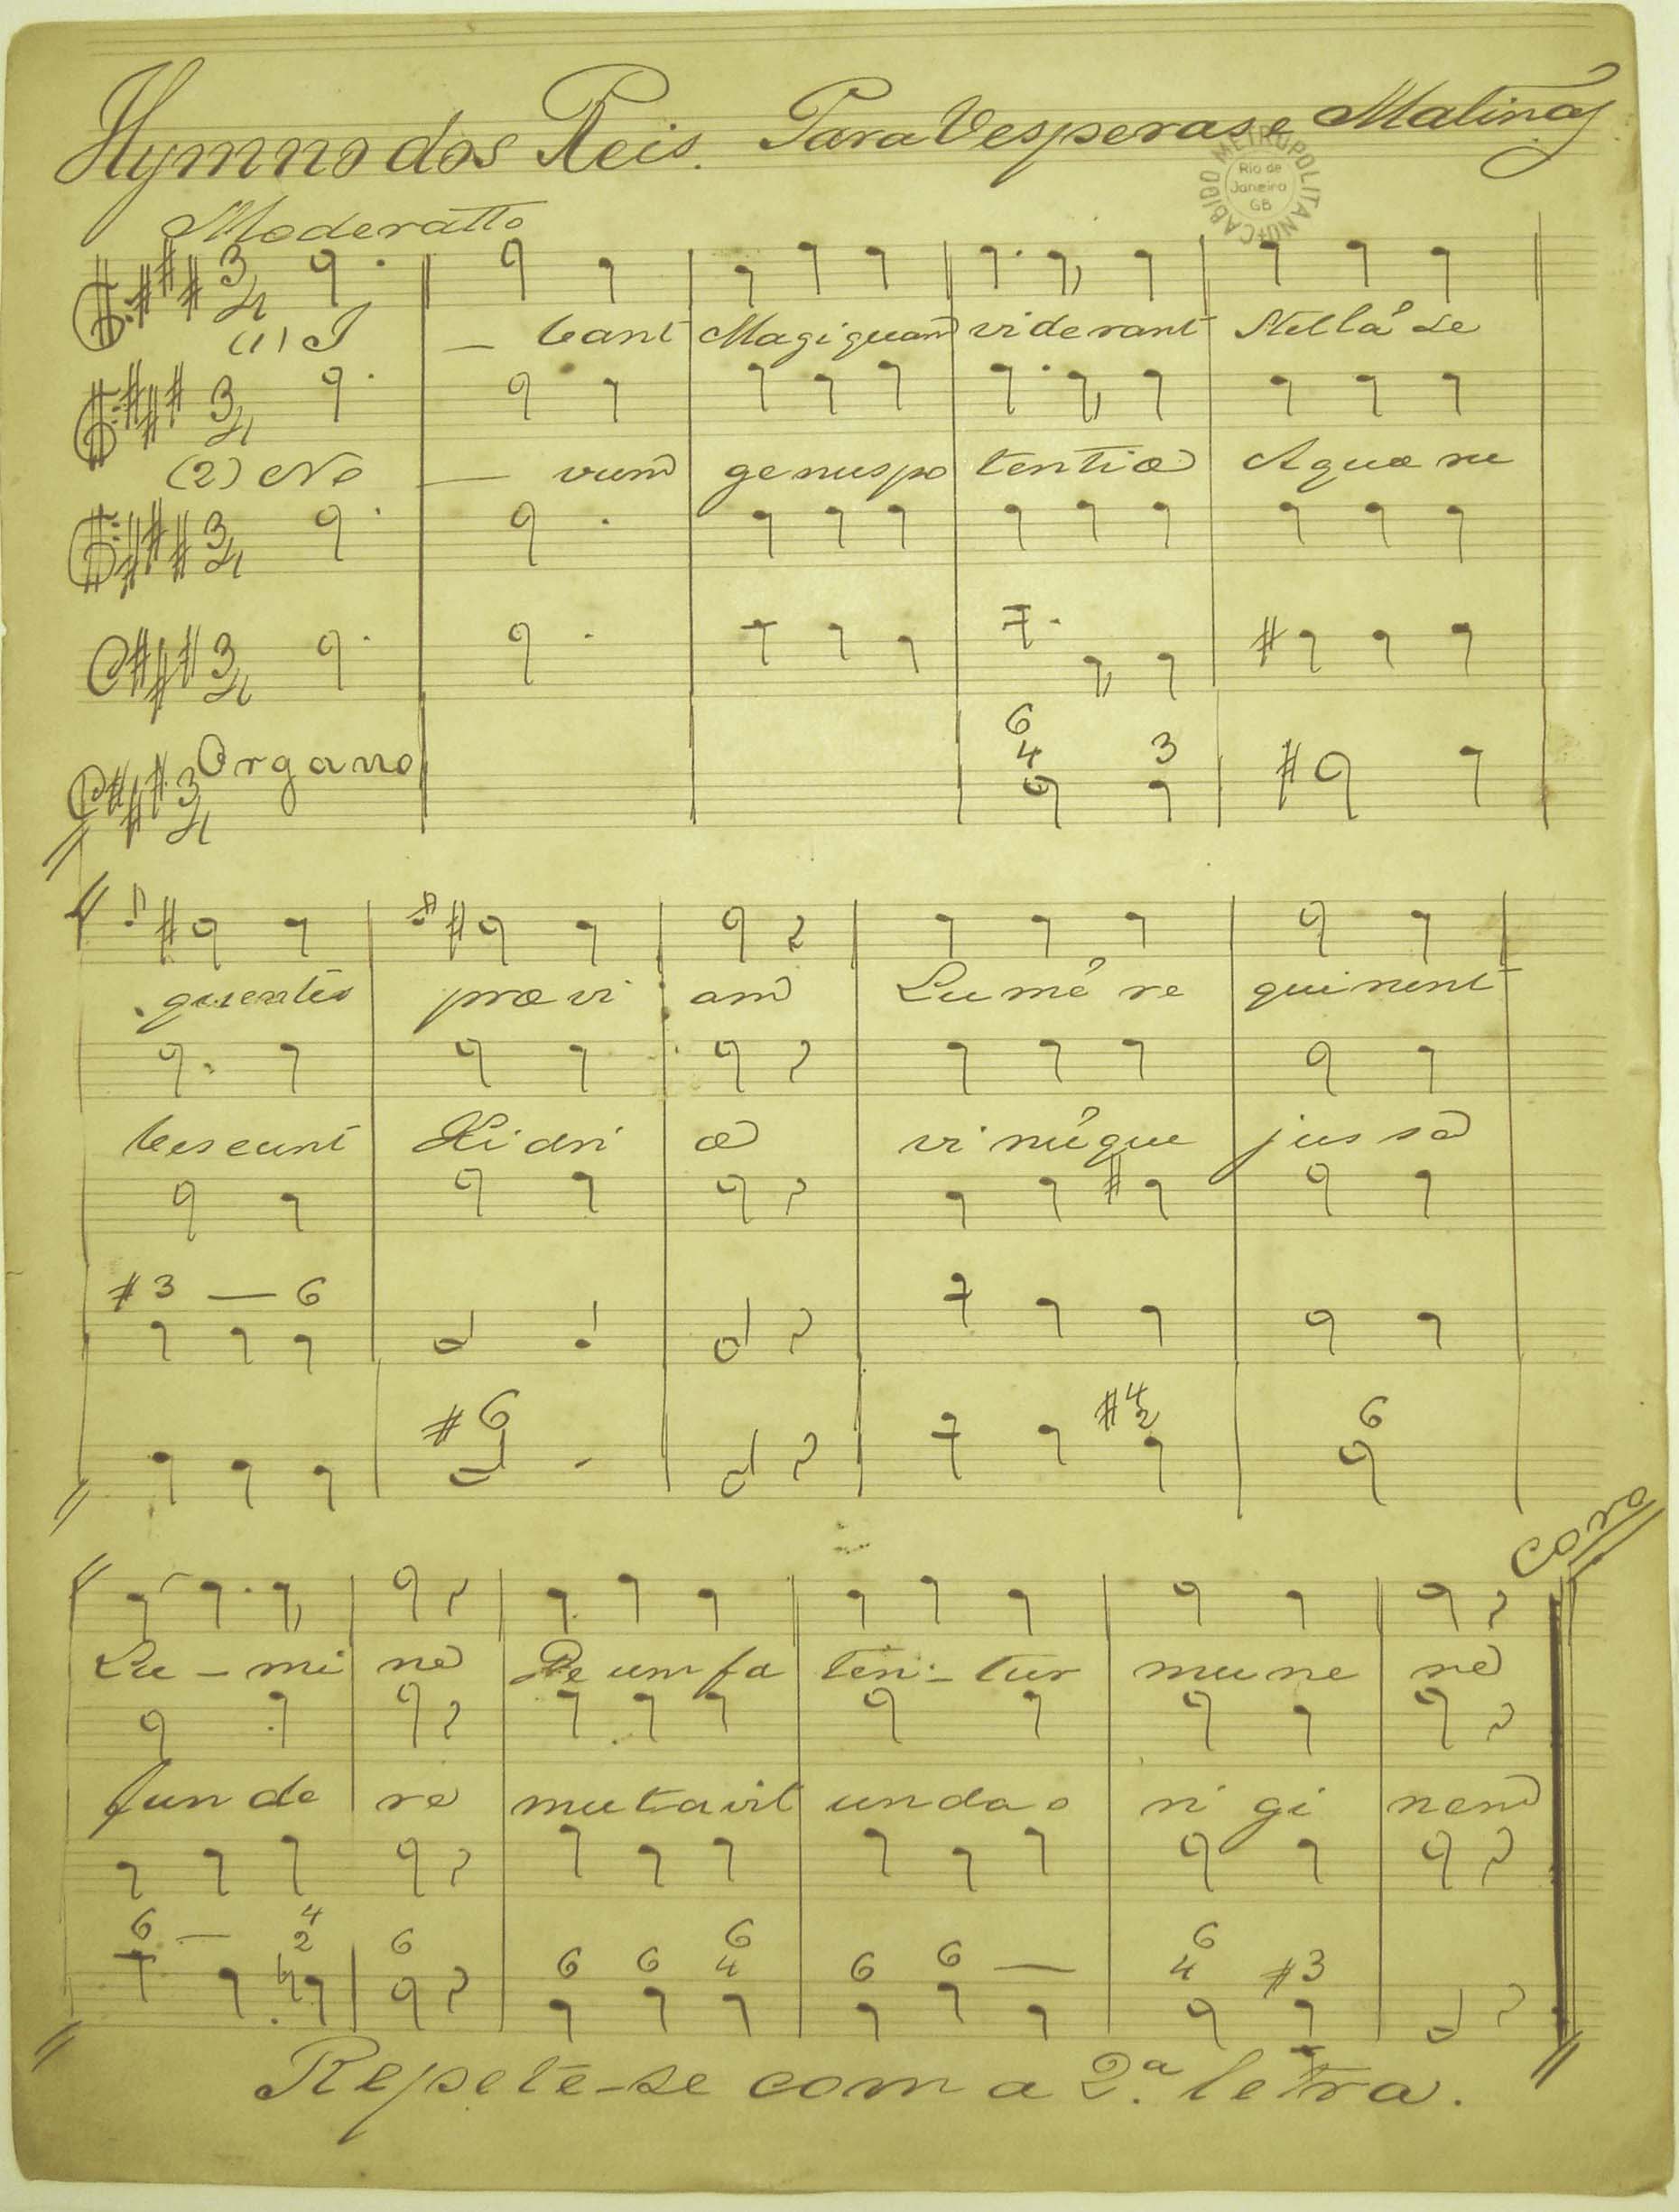 Hymno dos Reis. Para Vesperas e Matinas
CABIDO METROPOLITANO
Rio de
Janeiro
GB
Moderatto
3/4
(1) I — bant Magi quam viderant Stellã se
3/4
(2) No — vum genus po tentiæ Aquæ ru
3/4
3/4
6
4 3
Organo
3/4
quentes præ vi am Lumẽ re quirunt
bescunt Hidri æ vinũque jussa
#3 — 6
#6 #4 2 6
Coro
Lu - mi ne Deum fa ten - tur mune re
funde re mutavit unda o ri gi nem
6 — 4 2 6 6 6 6 4 6 6 — 6 4 #3
Repete-se com a 2.ª letra.